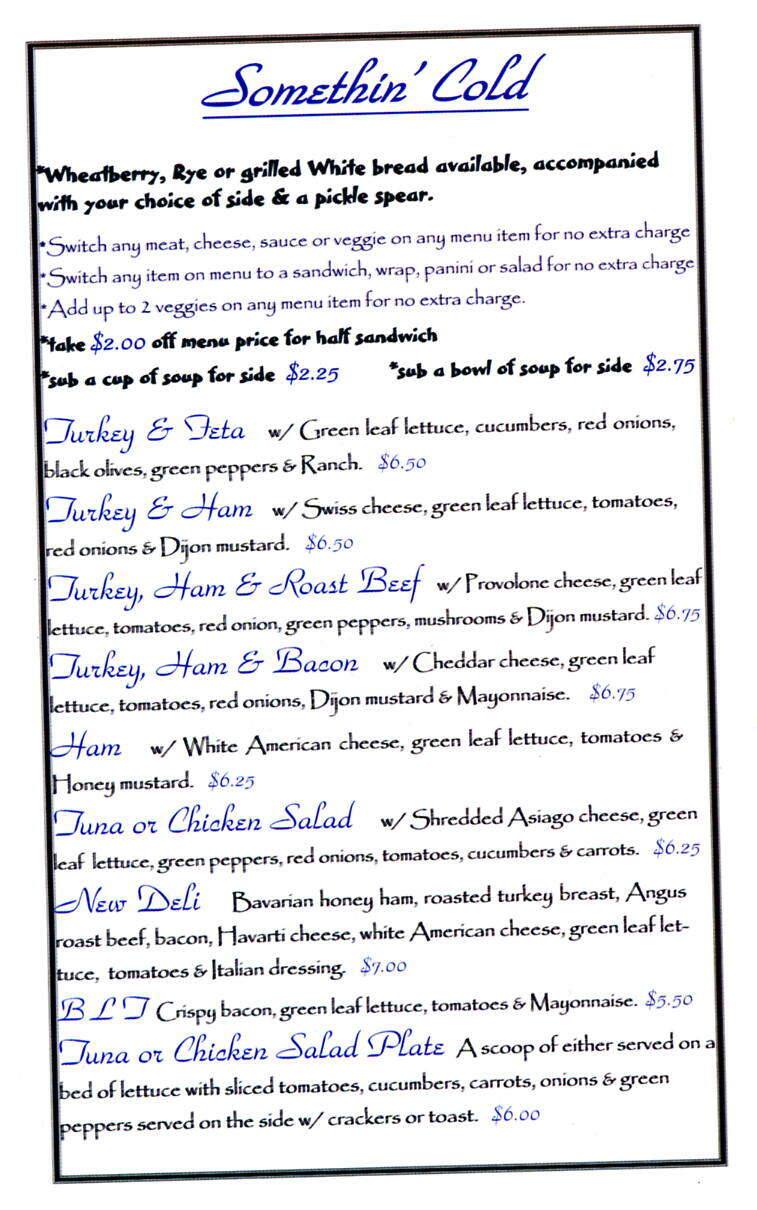 Somethin' Cold
*Wheatberry, Rye or grilled White bread available, accompanied
with your choice of side & a pickle spear.
*Switch any meat, cheese, sauce or veggie on any menu item for no extra charge
*Switch any item on menu to a sandwich, wrap, panini or salad for no extra charge
*Add up to 2 veggies on any menu item for no extra charge.
*take $2.00 off menu price for half sandwich
*sub a cup of soup for side $2.25 *sub a bowl of soup for side $2.75
Turkey & Feta w/ Green leaf lettuce, cucumbers, red onions,
black olives, green peppers & Ranch. $6.50
Turkey & Ham w/ Swiss cheese, green leaf lettuce, tomatoes,
red onions & Dijon mustard. $6.50
Turkey, Ham & Roast Beef w/ Provolone cheese, green leaf
lettuce, tomatoes, red onion, green peppers, mushrooms & Dijon mustard. $6.75
Turkey, Ham & Bacon w/ Cheddar cheese, green leaf
lettuce, tomatoes, red onions, Dijon mustard & Mayonnaise. $6.75
Ham w/ White American cheese, green leaf lettuce, tomatoes &
Honey mustard. $6.25
Tuna or Chicken Salad w/ Shredded Asiago cheese, green
leaf lettuce, green peppers, red onions, tomatoes, cucumbers & carrots. $6.25
New Deli Bavarian honey ham, roasted turkey breast, Angus
roast beef, bacon, Havarti cheese, white American cheese, green leaf let-
tuce, tomatoes & Italian dressing. $7.00
B L T Crispy bacon, green leaf lettuce, tomatoes & Mayonnaise. $5.50
Tuna or Chicken Salad Plate A scoop of either served on a
bed of lettuce with sliced tomatoes, cucumbers, carrots, onions & green
peppers served on the side w/ crackers or toast. $6.00